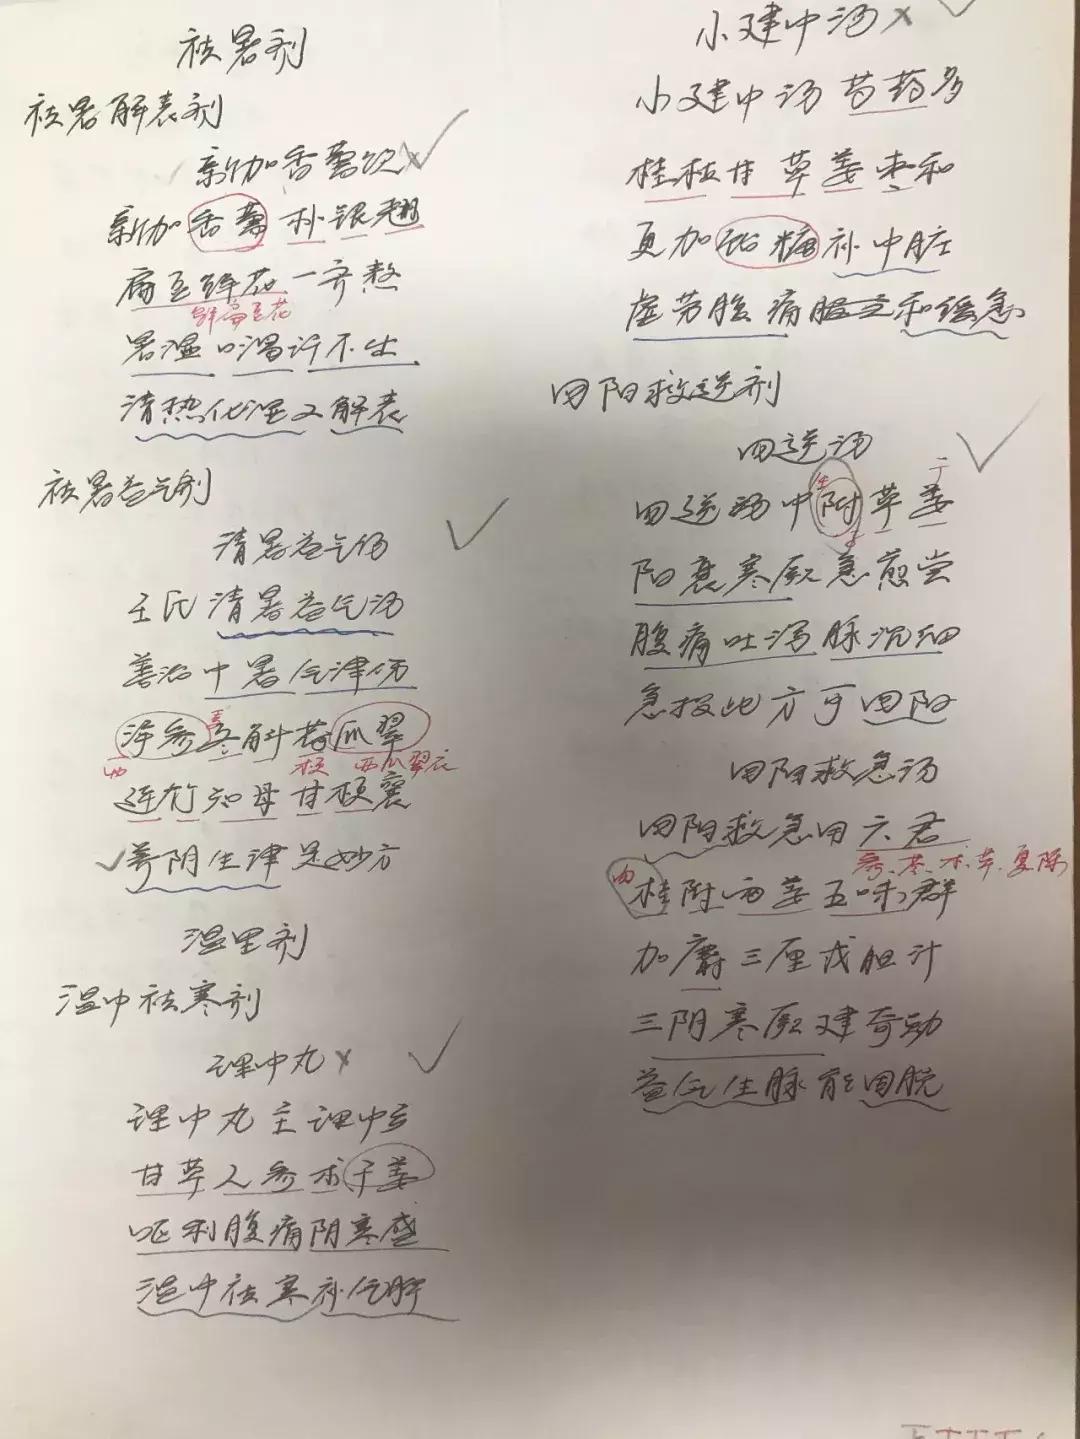 祛暑剂
祛暑解表剂
新加香薷饮
新加香薷朴银翘
扁豆鲜花一齐熬
鲜扁豆花
暑湿口渴汗不出
清热化湿又解表
祛暑益气剂
清暑益气汤
王氏清暑益气汤
善治中暑气津伤
洋参冬斛荷瓜翠
西 麦 梗 西瓜翠衣
连竹知母甘粳襄
养阴生津是妙方
温里剂
温中祛寒剂
理中丸
理中丸主理中乡
甘草人参术干姜
呕利腹痛阴寒盛
温中祛寒补气脾
小建中汤
小建中汤芍药多
桂枝甘草姜枣和
更加饴糖补中脏
虚劳腹痛服之和缓急
回阳救逆剂
四逆汤
四逆汤中附草姜
生 干
阳衰寒厥急煎尝
腹痛吐泻脉沉细
急投此方可回阳
回阳救急汤
回阳救急用六君
参、苓、术、草、夏、陈
肉
桂附干姜五味群
加麝三厘或胆汁
三阴寒厥建奇勋
益气生脉能固脱